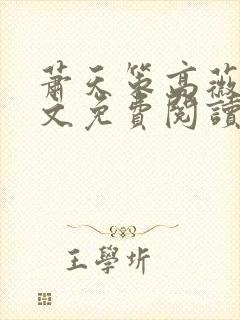 蕭天策高薇
文免費閱讀
王學圻